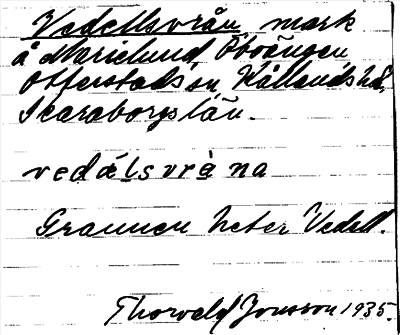 Vedellsvrån, mark
å Marielund, Öboängen
Otterstads sn, Kållands hd,
Skaraborgs län.
vedälsvråna
Grannen heter Vedell.
Thorvald Jonsson 1935.